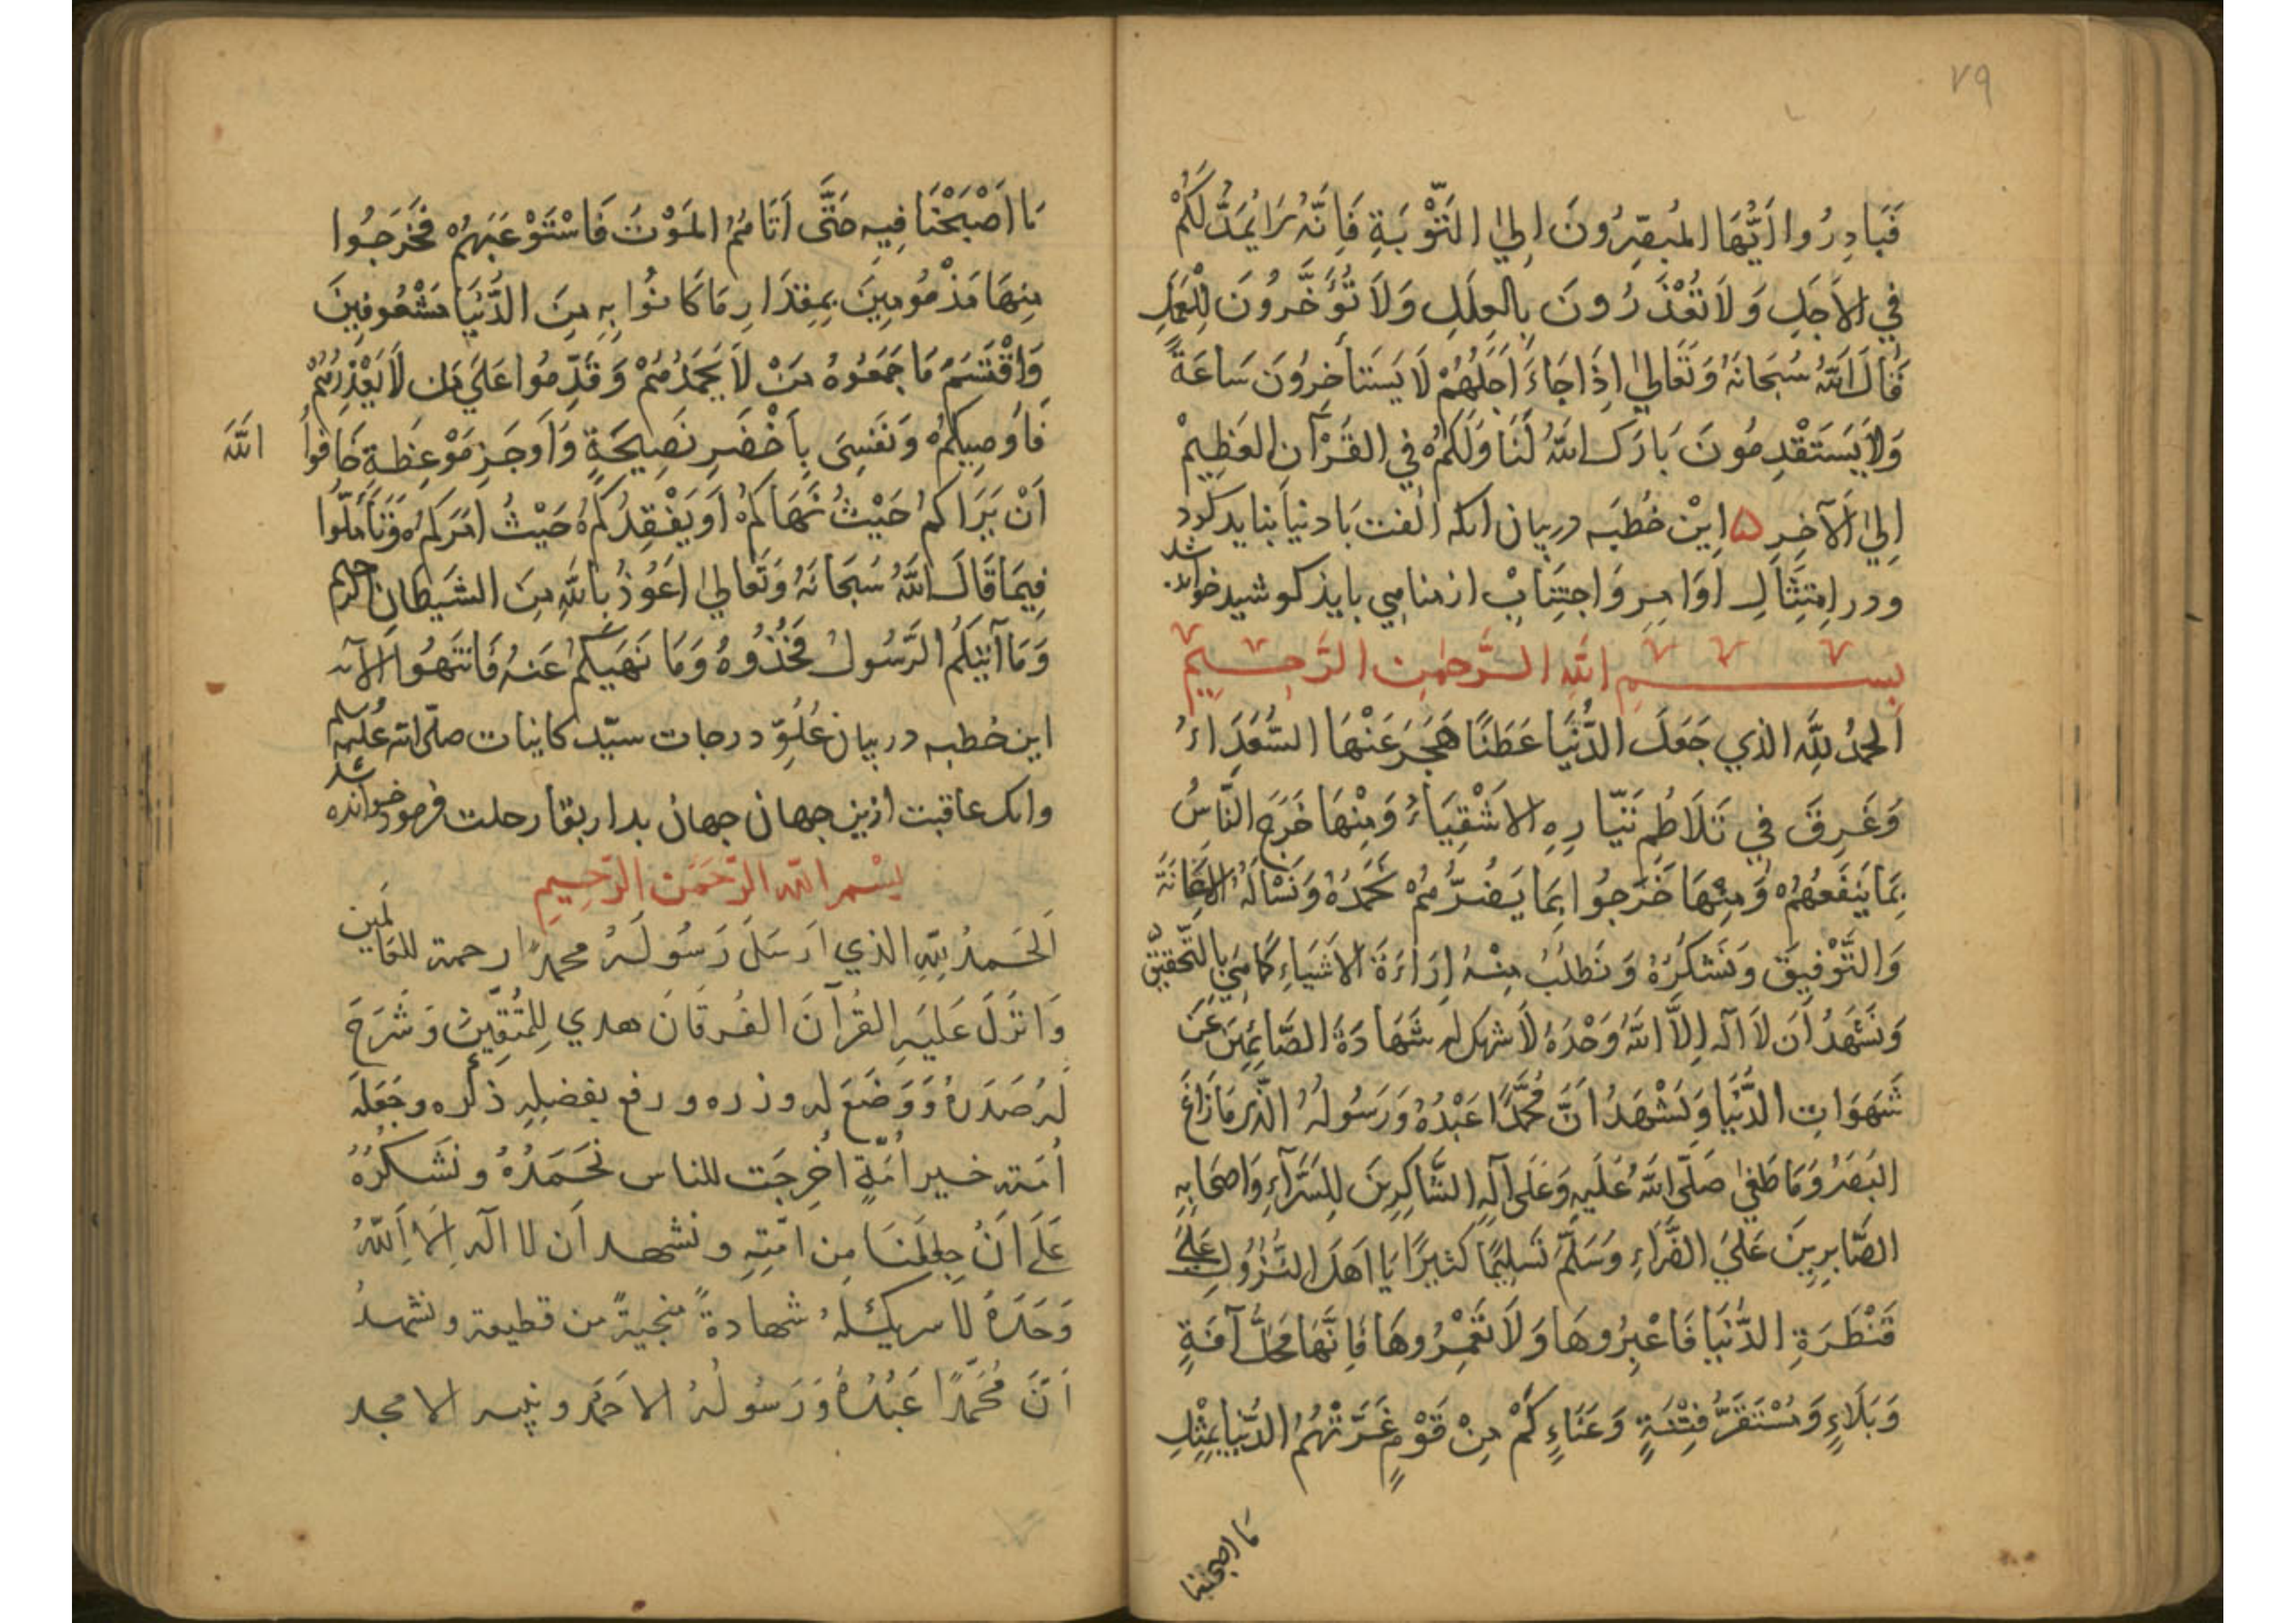 ٧٩
فَبَادِرُوا اَيُّهَا المُبصِّرُونَ اِلىٰ التَّوْبَةِ فَاِنَّهُ يُمَدُّ لَكُمْ
فِي الاَجَلِ وَلَا تُعْذَرُونَ بِالعِلَلِ وَلَا تُؤَخَّرُونَ لِلْعَمَلِ
قَالَ اللّٰهُ سُبحَانَهُ وَتَعَالىٰ اِذَا جَاءَ اَجَلُهُمْ لَا يَستَأخِرُونَ سَاعَةً
وَلَا يَستَقْدِمُونَ بَارَكَ اللّٰهُ لَنَا وَلَكُمْ فِي القُرْآنِ العَظِيمْ
اِلىٰ الآخِرِ ۵ اِيْن خُطبَه در بيان انكه الفت بَا دنيا نبايد كرد
ودر اِمتِثَالِ اَوَامِرِ وَاجتِنَابْ از مناهي بايد كوشيد خوانده شد
بِسمِ اللّٰهِ الرَّحمٰنِ الرَّحِيمِ
اَلحمدُ لِلّٰهِ الذي جَعَلَ الدُّنيَا عَطَنًا هَجَرَ عَنْهَا السُّعَدَاءُ
وَغَرِقَ فِي تَلَاطُمِ تَيَّارِهِ الاَشْقِيَاءُ وَمِنْهَا خَرَجَ النَّاسُ
بِمَا يَنفَعُهُمْ وَمِنْهَا خَرَجُوا بِمَا يَضُرُّهُمْ نَحمَدُهُ وَنَسْأَلُهُ الاِعَانَةَ
وَالتَّوْفِيقَ وَنَشكُرُهُ وَنَطلُبُ مِنْهُ اِرَاءَةَ الاَشيَاءِ كَمَا هِيَ بِالتَّحقِيقِ
وَنَشهَدُ اَن لَا اِلٰهَ اِلَّا اللّٰهُ وَحْدَهُ لَا شريك له شَهَادَةَ الصَّائِمِينَ عَنْ
شَهَوَاتِ الدُّنيَا وَنَشْهَدُ اَنَّ مُحَمَّدًا عَبْدُهُ وَرَسُولُهُ الَّذِي مَا زَاغَ
البَصَرُ وَمَا طَغىٰ صَلَّى اللّٰهُ عَلَيهِ وَعَلىٰ آلِهِ الشَّاكِرِينَ لِلسَّرَّآءِ وَاَصحَابِهِ
الصَّابِرِينَ عَلىَ الضَّرَّاءِ وَسَلَّمَ تَسلِيمًا كَثيرًا يَا اَهلَ النُّزُولِ عَلىٰ
قَنْطَرَةِ الدُّنيَا فَاعْبِرُوهَا وَلَا تَعْمُرُوهَا فَاِنَّهَا مَحَلُّ آفَةٍ
وَبَلَاءٍ وَمُسْتَقَرُّ فِتْنَةٍ وَعَنَاءٍ كَمْ مِنْ قَوْمٍ غَرَّتْهُمُ الدُّنيَا بِمِثْلِ
مَا اصبحنا
مَا اَصْبَحْنَا فِيهِ حَتَّى اَتَاهُمُ المَوْتُ فَاسْتَوْعَبَهُمْ فَخَرَجُوا
مِنهَا مَذْمُومِينَ بِمِقدَارِ مَا كَانُوا بِهِ مِنَ الدُّنْيَا مَشْعُوفِينَ
وَاقْتَسَمَ مَا جَمَعُوهُ مَنْ لَا يَحمَدُهُمْ وَقَدِّمُوا عَلىَ مَن لَا يَعْذِرُهُمْ
فَاوصِيكُمْ وَنَفسِى بِاَخْصَرِ نَصِيحَةٍ وَاَوجَزِ مَوْعِظَةٍ خَافُوا اللّٰهَ
اَنْ يَرَاكُم حَيْثُ نَهَاكُمْ اَو يَفْقِدَكُمْ حَيْثُ اَمَرَكُمْ وَتَأَمَّلُوا
فِيمَا قَالَ اللّٰهُ سُبحَانَهُ وَتَعَالىٰ اَعُوذُ بِاللّٰهِ مِنَ الشَيطَانِ الرجيم
وَمَا آتٰيكُمُ الرَّسُولُ فَخُذُوهُ وَمَا نَهٰيكُم عَنهُ فَانتَهُوا الآيه
اين خطبه در بيان عُلُوِّ درجات سيّد كاينات صلّى الله عليه وسلم
وانكه عاقبت ازين جهان جهان بدار بقا رحلت فرمود خوانده شد
بِسْمِ اللّٰهِ الرَّحمَنِ الرَّحِيمِ
اَلحَمدُ لِلّٰهِ الذي اَرسَلَ رَسُولَهُ محمدًا رحمة للعالمين
وَانزَلَ عَلَيهِ القُرآنَ الفُرقَانَ هدي لِلمُتَّقِينَ وَشَرَحَ
لَهُ صَدرَهُ وَوَضَعَ له وزره ورفع بفضلِهِ ذكره وجَعَلَ
اُمَته خير اُمَّةٍ اُخرِجَت للناس نَحمَدُهُ ونَشكُرُهُ
عَلىَ اَنْ جعَلَنَا مِن امّتِهِ ونشهد اَن لا اله اِلا اللّٰهُ
وَحدَهُ لا شريك لهُ شهادةً منجيةً من قطيعة ونشهدُ
اَنَّ مُحَمَّدًا عَبْدُهُ وَرَسُولُهُ الاحمَد ونبيه الامجد